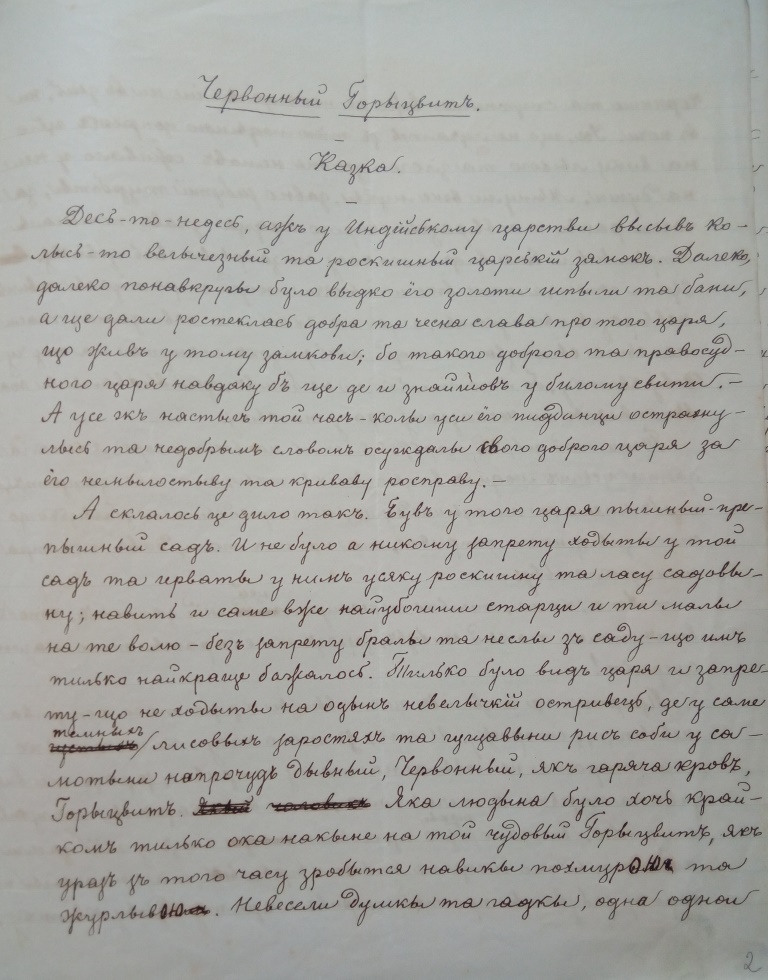 Червонный Горыцвитъ.
Казка.
Десь-то-недесь, ажъ у Индійському царстви высывъ ко-
лысь-то велычезный та роскишный царській замокъ. Далеко,
далеко понавкругы було выдко ёго золоти шпыли та бани,
а ще дали ростеклась добра та чесна слава про того царя,
що живъ у тому замкови; бо такого доброго та правосуд-
ного царя навдаку бъ ще де и знайшовъ у билому свити. –
А усе жъ настыгъ той часъ - колы уси ёго пидданци острахну-
лысь та недобрымъ словомъ осуждалы свого доброго царя за
ёго немылостыву та криваву росправу. –
А склалось це дило такъ. Бувъ у того царя пышный-пре-
пышный садъ. И не було а никому запрету ходыты у той
садъ та ирваты у нимъ усяку роскишну та ласу садовы-
ну; навить и саме вже найубогиши старци и ти малы
на те волю - безъ запрету бралы та неслы зъ саду - що имъ
тилько найкраще бажалось. Тилько було видъ царя и запре-
ту - що не ходыты на одынъ невелычкій остривець, де у саме
темныхъ
густыхъ/лисовыхъ заростяхъ та гущавыни рисъ соби у са-
мотыни напрочудъ дывный, Червонный, якъ гаряча кровъ,
Горыцвитъ. Якый чоловикъ Яка людына було хочъ край-
комъ тилько ока накыне на той чудовый Горыцвитъ, якъ
уразъ зъ того часу зробытся навикы похмурою та
журлывою. Невесели думкы та гадкы, одна одной
2